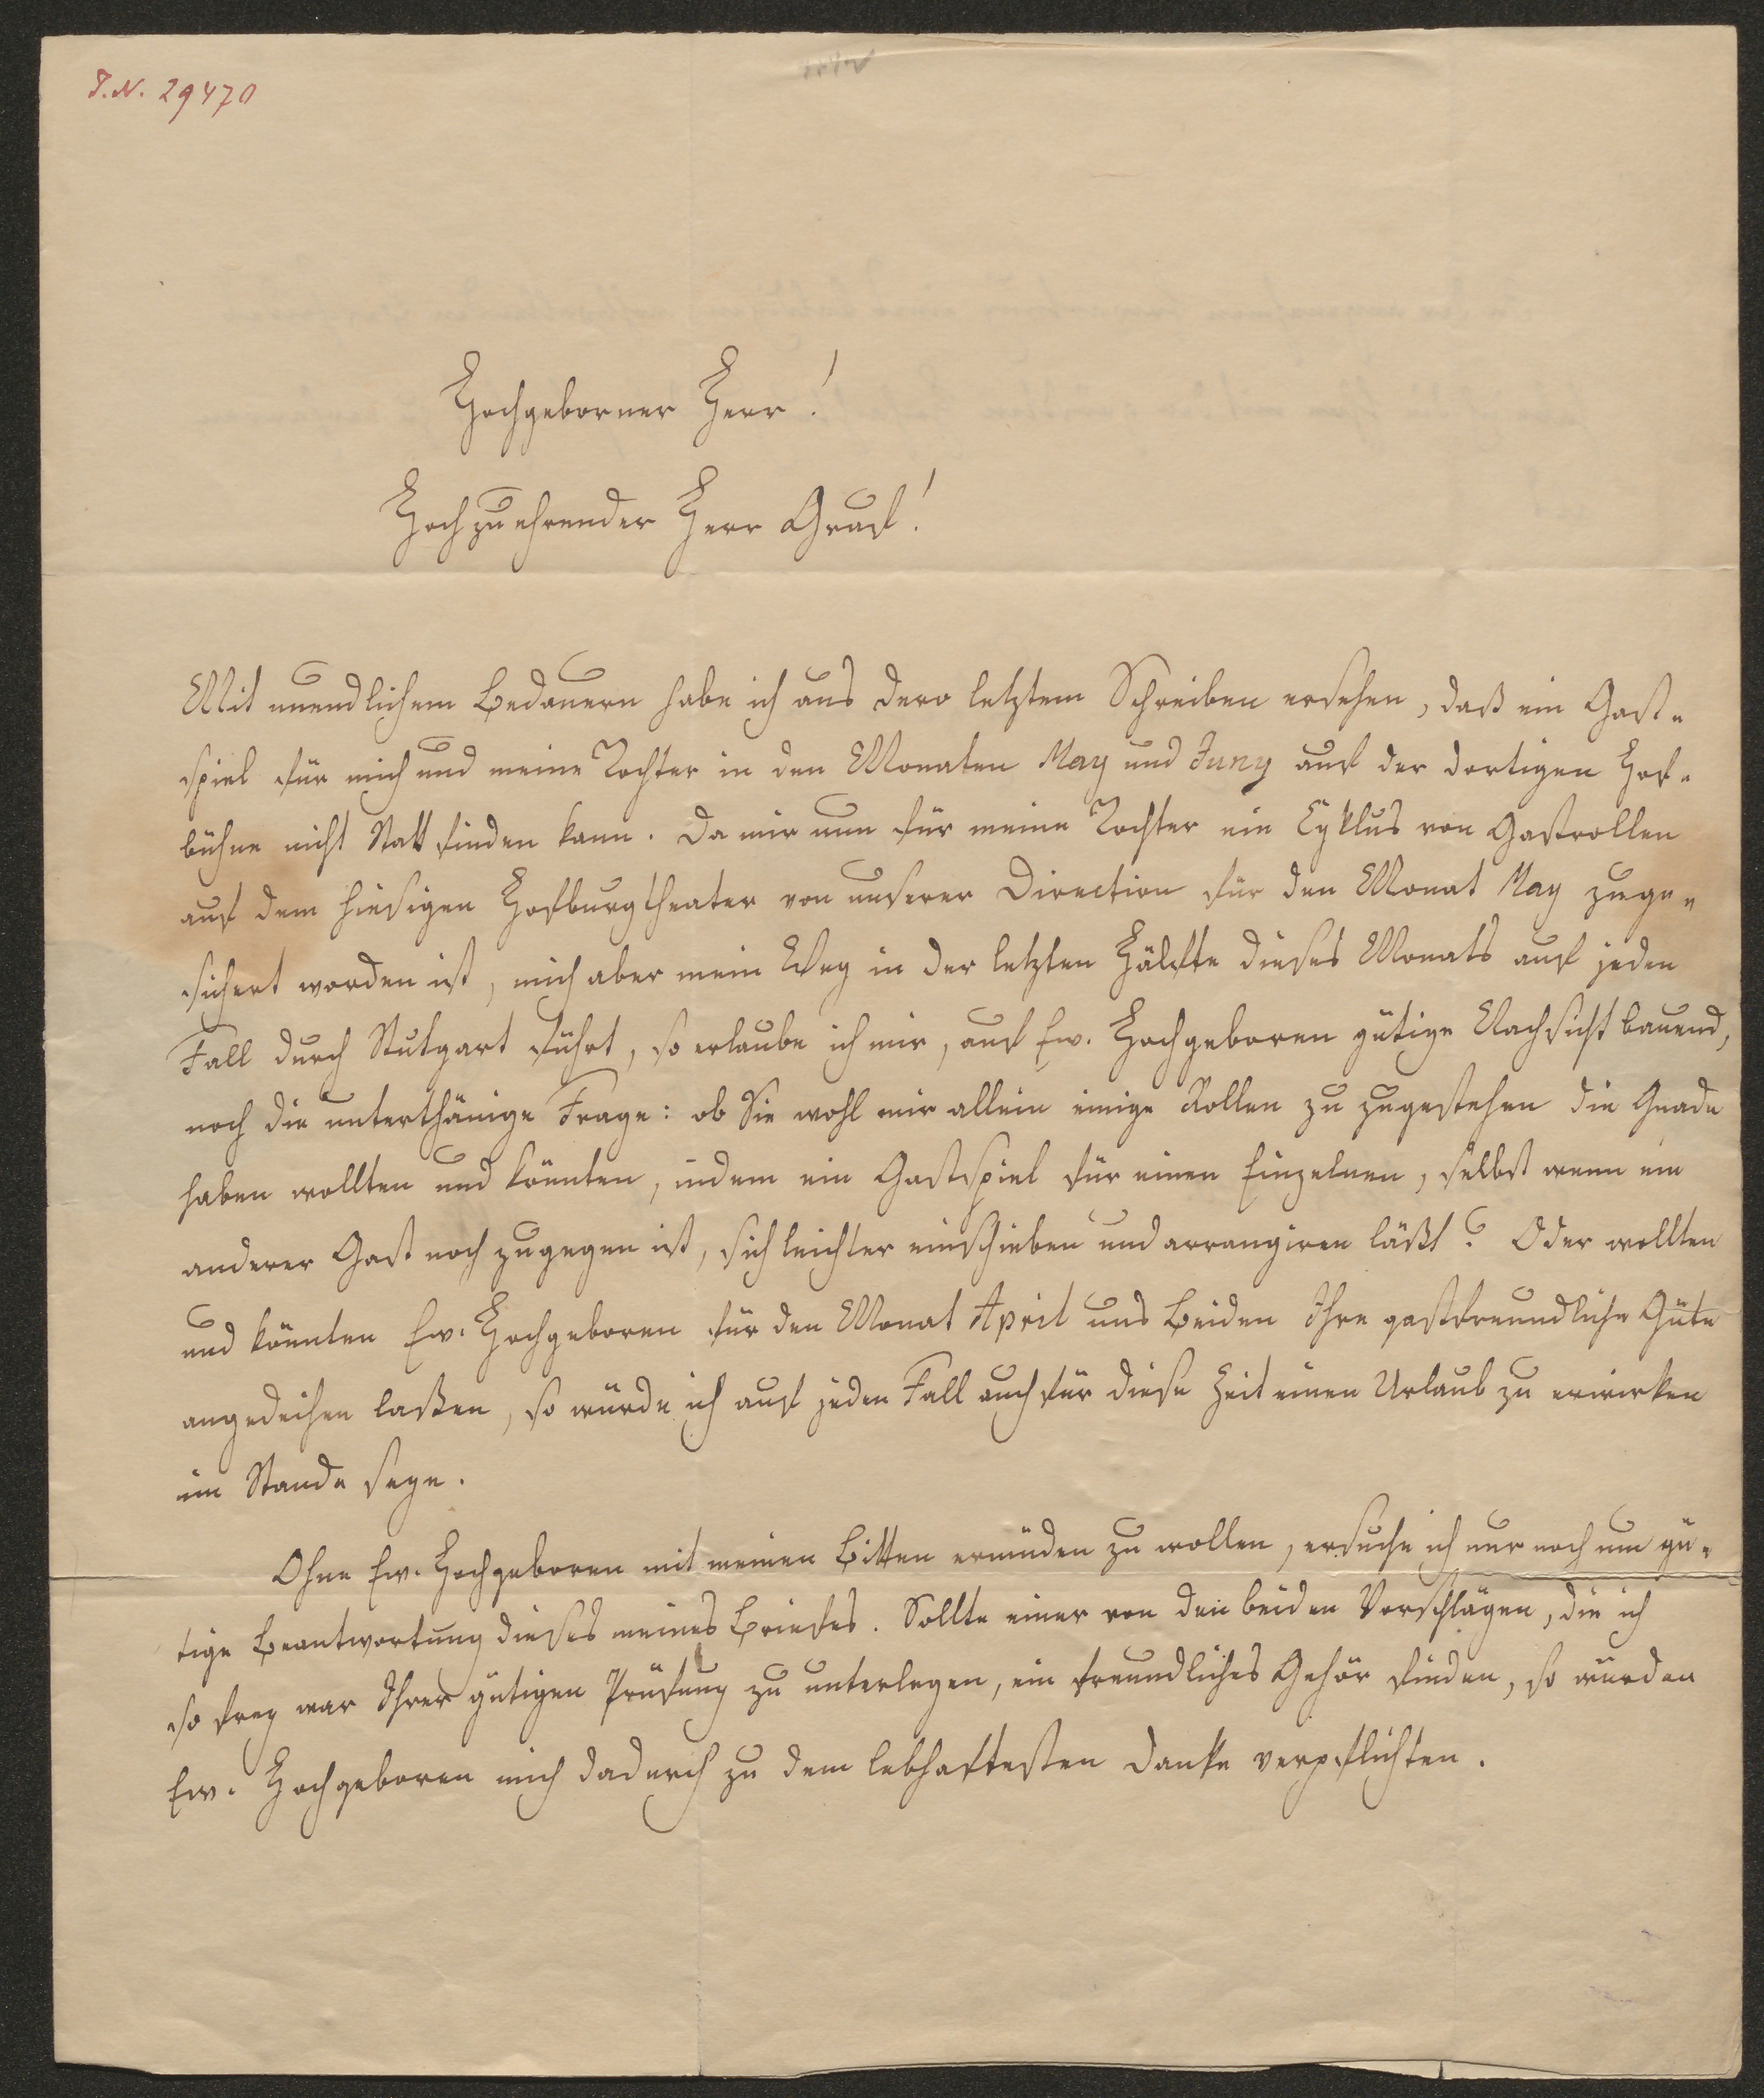 I.N. 29470
Hochgeborner Herr!
Hochzuehrender Herr Graf!
Mit unendlichem Bedauern habe ich aus dero letztem Schreiben ersehen, daß ein Gast-
spiel für mich und meine Tochter in den Monaten May und Juny auf der dortigen Hof-
bühne nicht Statt finden kann. Da mir nun für meine Tochter ein Cyklus von Gastrollen
auf dem hiesigen Hofburgtheater von unserer Direction für den Monat May zuge-
sichert worden ist, mich aber mein Weg in der letzten Hälfte dieses Monats auf jeden
Fall durch Stutgart führt, so erlaube ich mir, auf Ew. Hochgeboren gütige Nachsicht bauend,
noch die unterthänige Frage: ob Sie wohl mir allein einige Rollen zu zugestehen die Gnade
haben wollten und könnten, indem ein Gastspiel für einen Einzelnen, selbst wenn ein
anderer Gast noch zugegen ist, sich leichter einschieben und arrangiren läßt? Oder wollten
und könnten Ew. Hochgeboren für den Monat April uns Beiden Ihre gastfreundliche Güte
angedeihen laßen, so würde ich auf jeden Fall auch für diese Zeit einen Urlaub zu erwirken
im Stande seyn.
Ohne Ew. Hochgeboren mit meinen Bitten ermüden zu wollen, ersuche ich nur noch um gü-
tige Beantwortung dieses meines Briefes. Sollte einer von den beiden Vorschlägen, die ich
so frey war Ihrer gütigen Prüfung zu unterlegen, ein freundliches Gehör finden, so würden
Ew. Hochgeboren mich dadurch zu dem lebhaftesten Danke verpflichten.